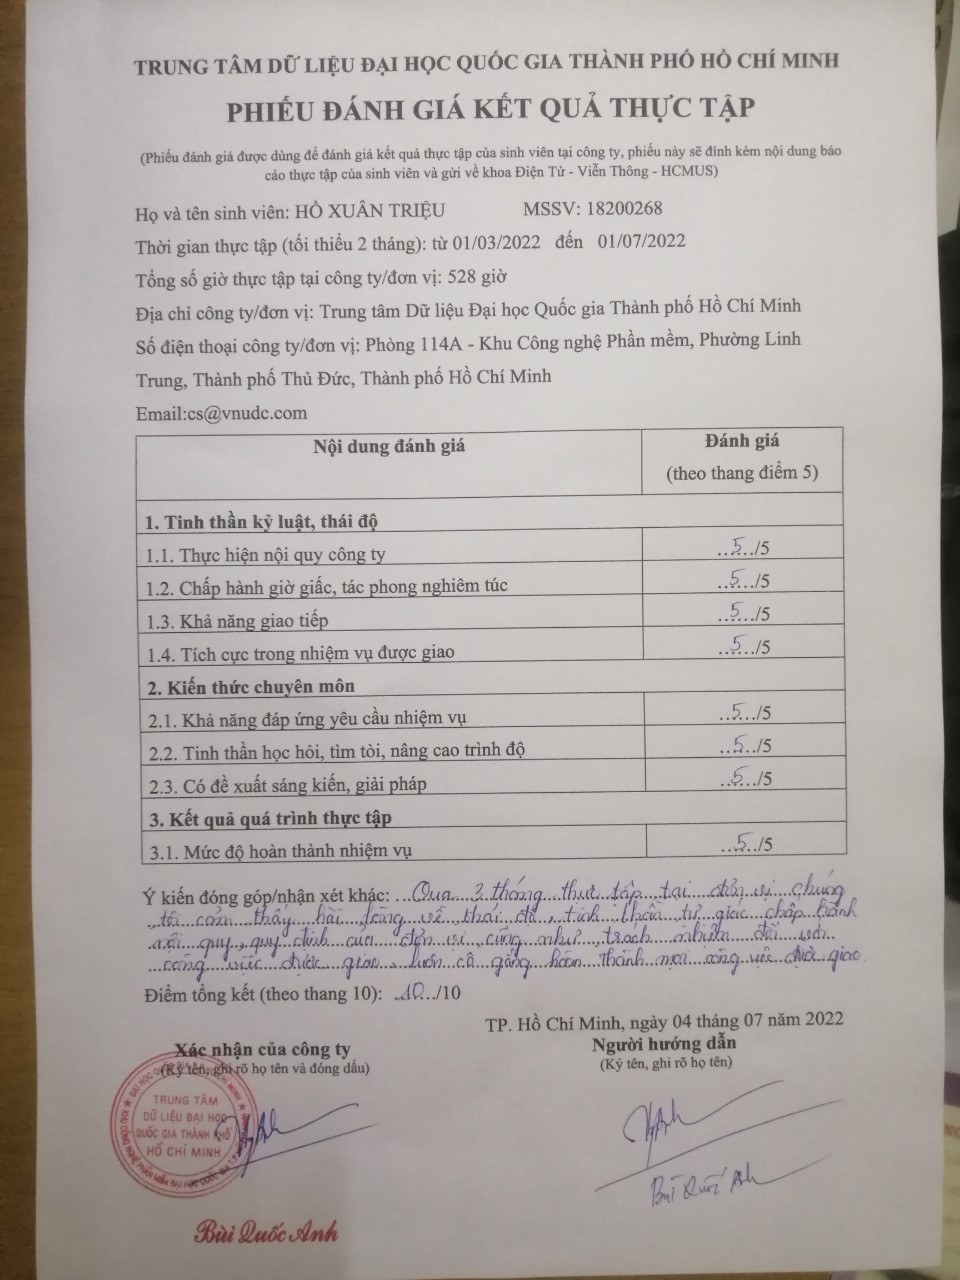 TRUNG TÂM DỮ LIỆU ĐẠI HỌC QUỐC GIA THÀNH PHỐ HỒ CHÍ MINH
PHIẾU ĐÁNH GIÁ KẾT QUẢ THỰC TẬP
(Phiếu đánh giá được dùng để đánh giá kết quả thực tập của sinh viên tại công ty, phiếu này sẽ đính kèm nội dung báo
cáo thực tập của sinh viên và gửi về khoa Điện Tử - Viễn Thông - HCMUS)
Họ và tên sinh viên: HỒ XUÂN TRIỆU MSSV: 18200268
Thời gian thực tập (tối thiểu 2 tháng): từ 01/03/2022 đến 01/07/2022
Tổng số giờ thực tập tại công ty/đơn vị: 528 giờ
Địa chỉ công ty/đơn vị: Trung tâm Dữ liệu Đại học Quốc gia Thành phố Hồ Chí Minh
Số điện thoại công ty/đơn vị: Phòng 114A - Khu Công nghệ Phần mềm, Phường Linh
Trung, Thành phố Thủ Đức, Thành phố Hồ Chí Minh
Email:cs@vnudc.com
Nội dung đánh giá Đánh giá
(theo thang điểm 5)
1. Tinh thần kỷ luật, thái độ
1.1. Thực hiện nội quy công ty ..5.../5
1.2. Chấp hành giờ giấc, tác phong nghiêm túc ..5.../5
1.3. Khả năng giao tiếp ..5.../5
1.4. Tích cực trong nhiệm vụ được giao ..5.../5
2. Kiến thức chuyên môn
2.1. Khả năng đáp ứng yêu cầu nhiệm vụ ..5.../5
2.2. Tinh thần học hỏi, tìm tòi, nâng cao trình độ ..5.../5
2.3. Có đề xuất sáng kiến, giải pháp ..5.../5
3. Kết quả quá trình thực tập
3.1. Mức độ hoàn thành nhiệm vụ ..5.../5
Ý kiến đóng góp/nhận xét khác: Qua 3 tháng thực tập tại đơn vị chúng
tôi cảm thấy hài lòng về thái độ, tinh thần tự giác chấp hành
nội quy, quy định của đơn vị, cũng như trách nhiệm đối với
công việc được giao, luôn cố gắng hoàn thành mọi công việc được giao.
Điểm tổng kết (theo thang 10): ..10../10
TP. Hồ Chí Minh, ngày 04 tháng 07 năm 2022
Xác nhận của công ty Người hướng dẫn
(Ký tên, ghi rõ họ tên và đóng dấu) (Ký tên, ghi rõ họ tên)
TRUNG TÂM
DỮ LIỆU ĐẠI HỌC
QUỐC GIA THÀNH PHỐ
HỒ CHÍ MINH
Bùi Quốc Anh
Bùi Quốc Anh